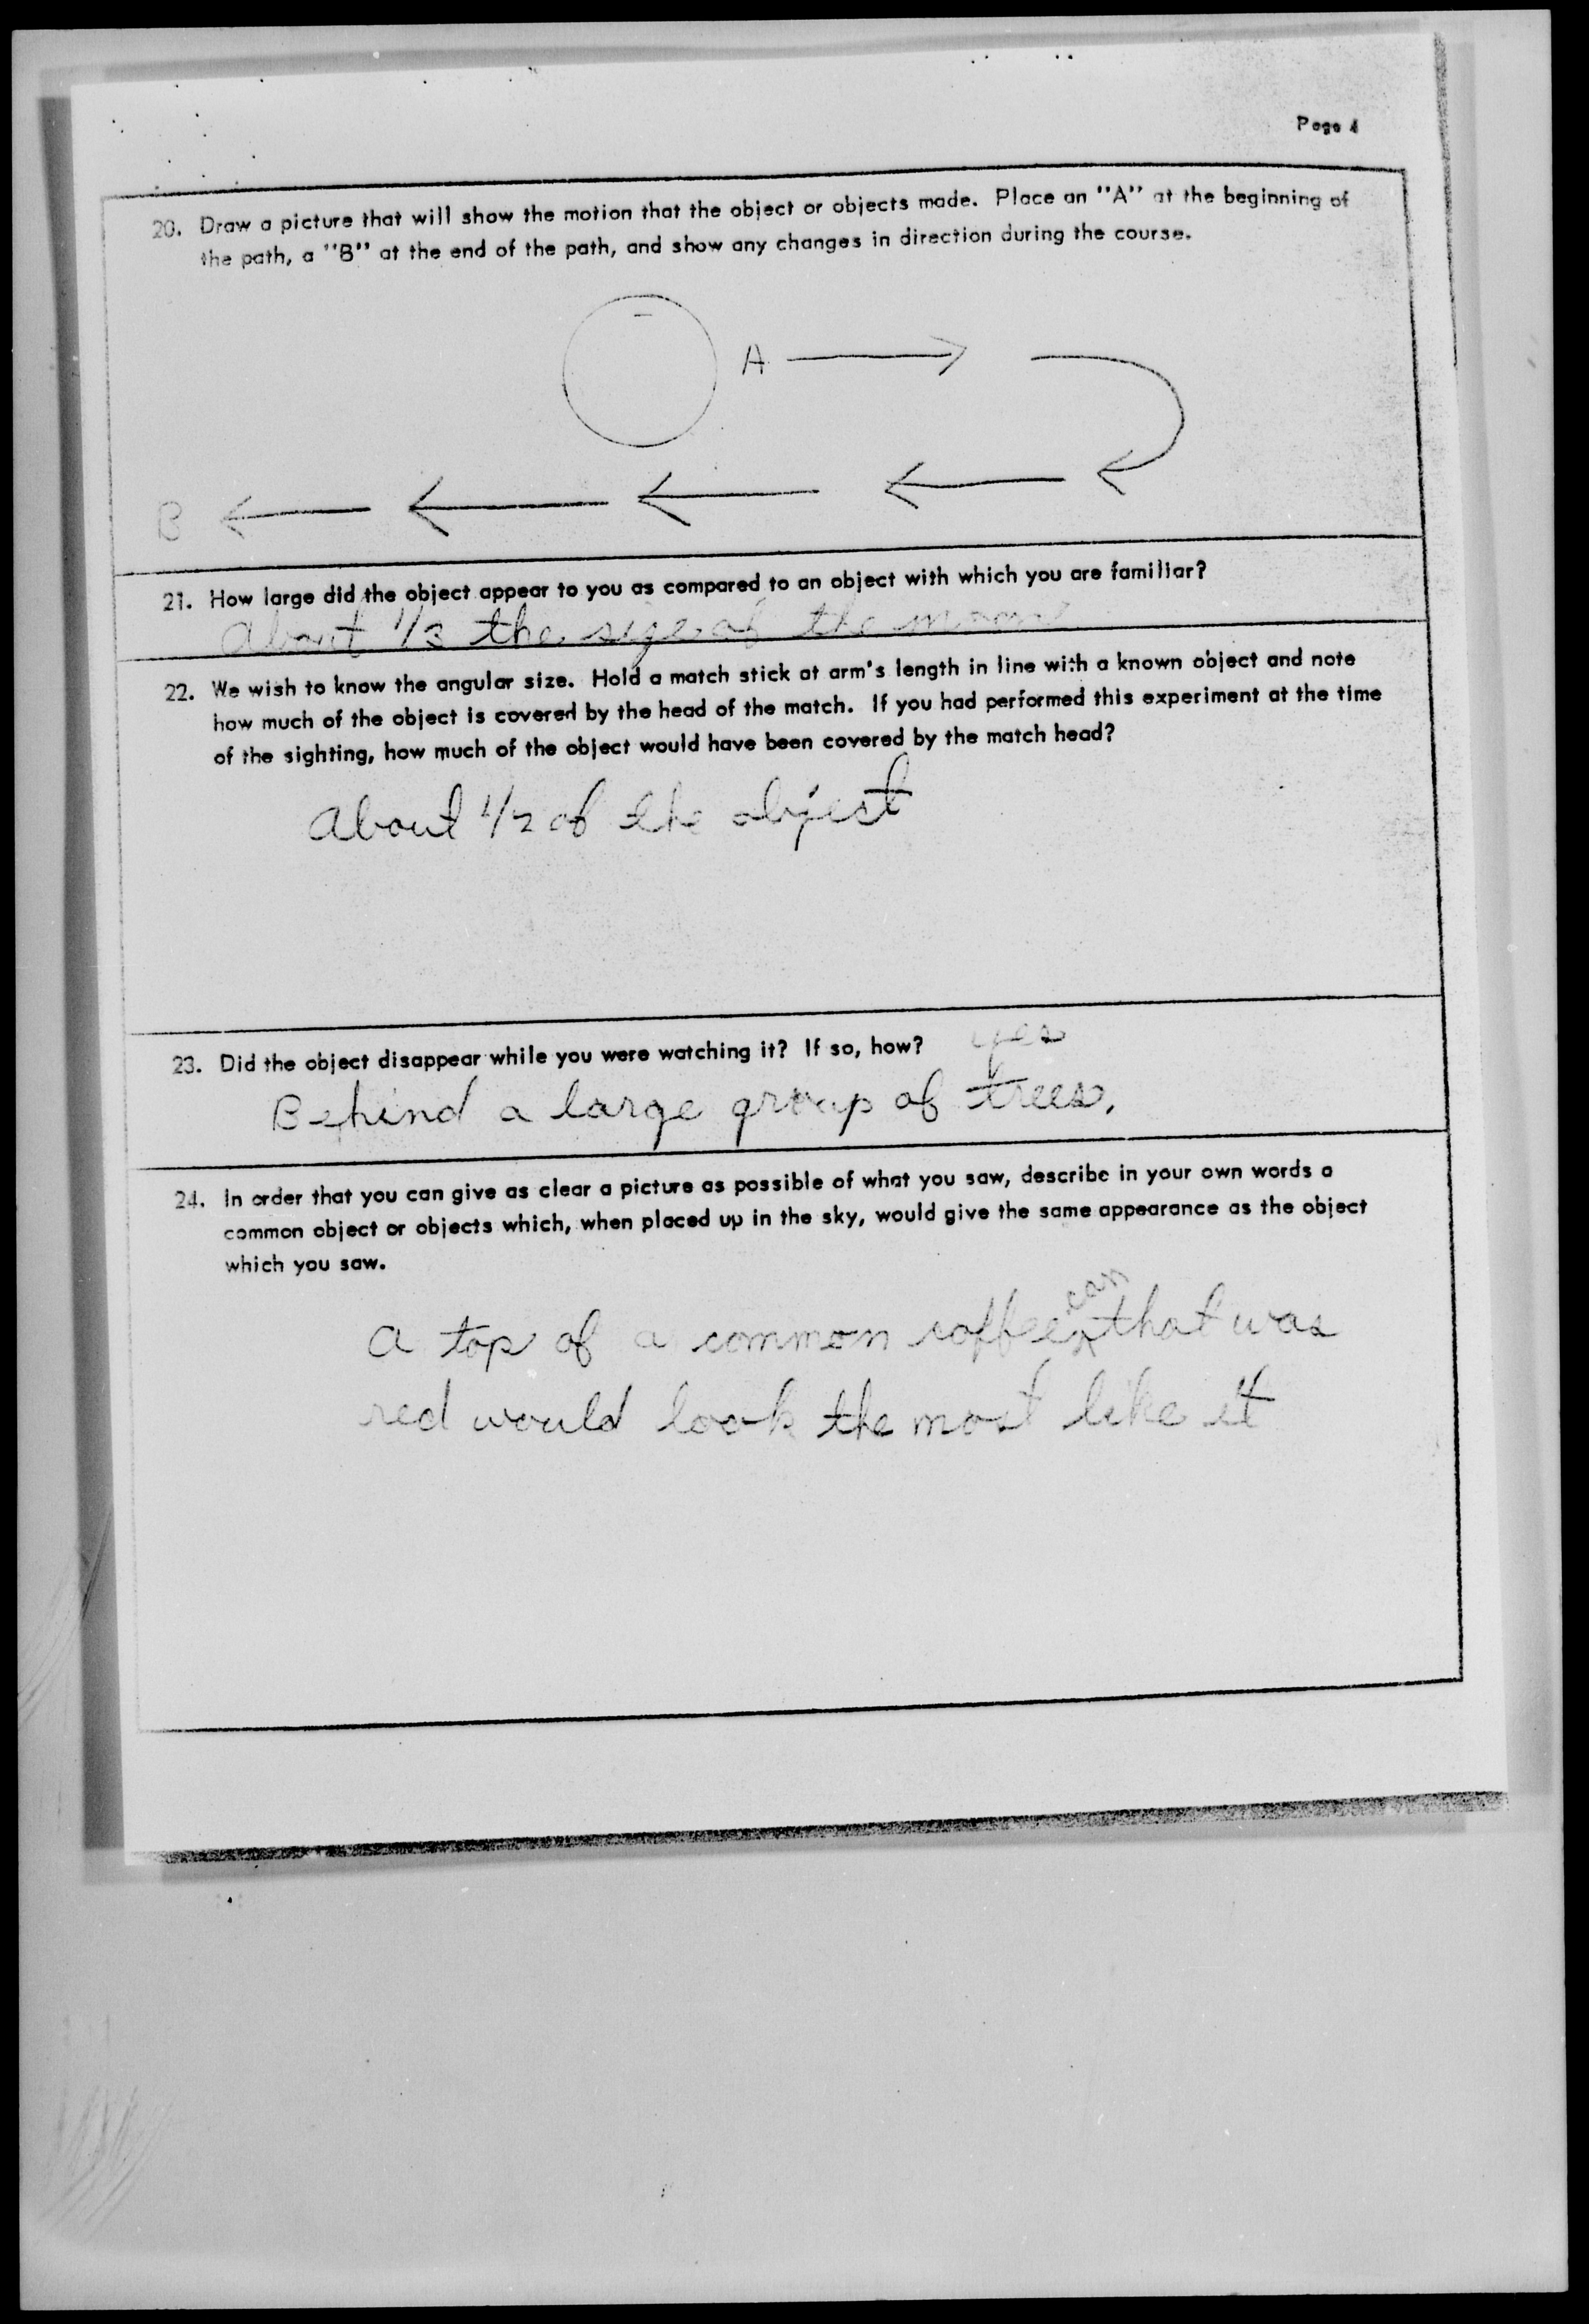 Page 4
20. Draw a picture that will show the motion that the object or objects made. Place an "A" at the beginning of
the path, a "B" at the end of the path, and show any changes in direction during the course.
A
B
21. How large did the object appear to you as compared to an object with which you are familiar?
About 1/3 the size of the moon
22. We wish to know the angular size. Hold a match stick at arm's length in line with a known object and note
how much of the object is covered by the head of the match. If you had performed this experiment at the time
of the sighting, how much of the object would have been covered by the match head?
About 1/2 of the object
23. Did the object disappear while you were watching it? If so, how? yes
Behind a large group of trees.
24. In order that you can give as clear a picture as possible of what you saw, describe in your own words a
common object or objects which, when placed up in the sky, would give the same appearance as the object
which you saw.
A top of a common coffee can that was
red would look the most like it